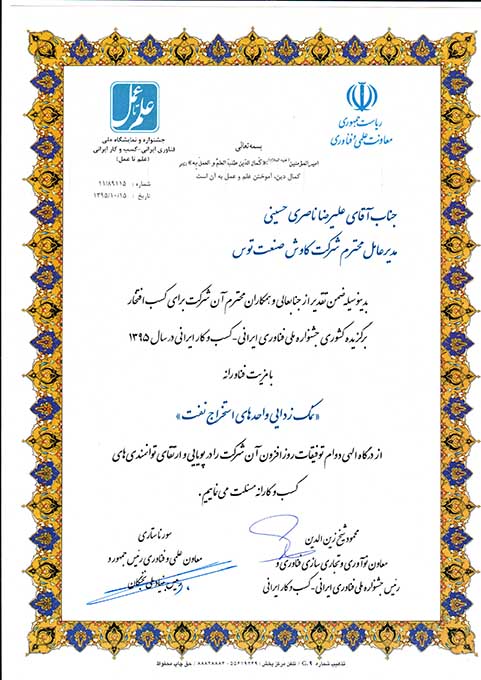 علم تا عمل
جشنواره و نمایشگاه ملی
فناوری ایرانی - کسب و کار ایرانی
(علم تا عمل)
شماره : ۱۱/۸۹۱۱۵
تاریخ : ۱۳۹۵/۱۰/۱۵
ریاست جمهوری
معاونت علمی و فناوری
بسمه‌تعالی
امیرالمؤمنین (علیه السلام): «کَمالُ الدّینِ طَلَبُ العِلمِ وَ العَمَلُ بِهِ»
کمال دین، آموختن علم و عمل به آن است
جناب آقای علیرضا ناصری حسینی
مدیرعامل محترم شرکت کاوش صنعت توس
بدینوسیله ضمن تقدیر از جنابعالی و همکاران محترم آن شرکت برای کسب افتخار
برگزیده کشوری جشنواره ملی فناوری ایرانی - کسب و کار ایرانی در سال ۱۳۹۵
با مزیت فناورانه
«نمک زدایی واحدهای استخراج نفت»
از درگاه الهی دوام توفیقات روزافزون آن شرکت را در پویایی و ارتقای توانمندی های
کسب و کارانه مسئلت می نماییم.
محمود شیخ زین الدین
معاون نوآوری و تجاری سازی فناوری و
رئیس جشنواره ملی فناوری ایرانی - کسب و کار ایرانی
سورنا ستاری
معاون علمی و فناوری رئیس جمهور و
رئیس بنیاد ملی نخبگان
تذهیب شماره G.۹ / تلفن مرکز پخش : ۵۵۶۱۹۲۳۹ - ۸۸۸۲۸۸۸۲ / حق چاپ محفوظ